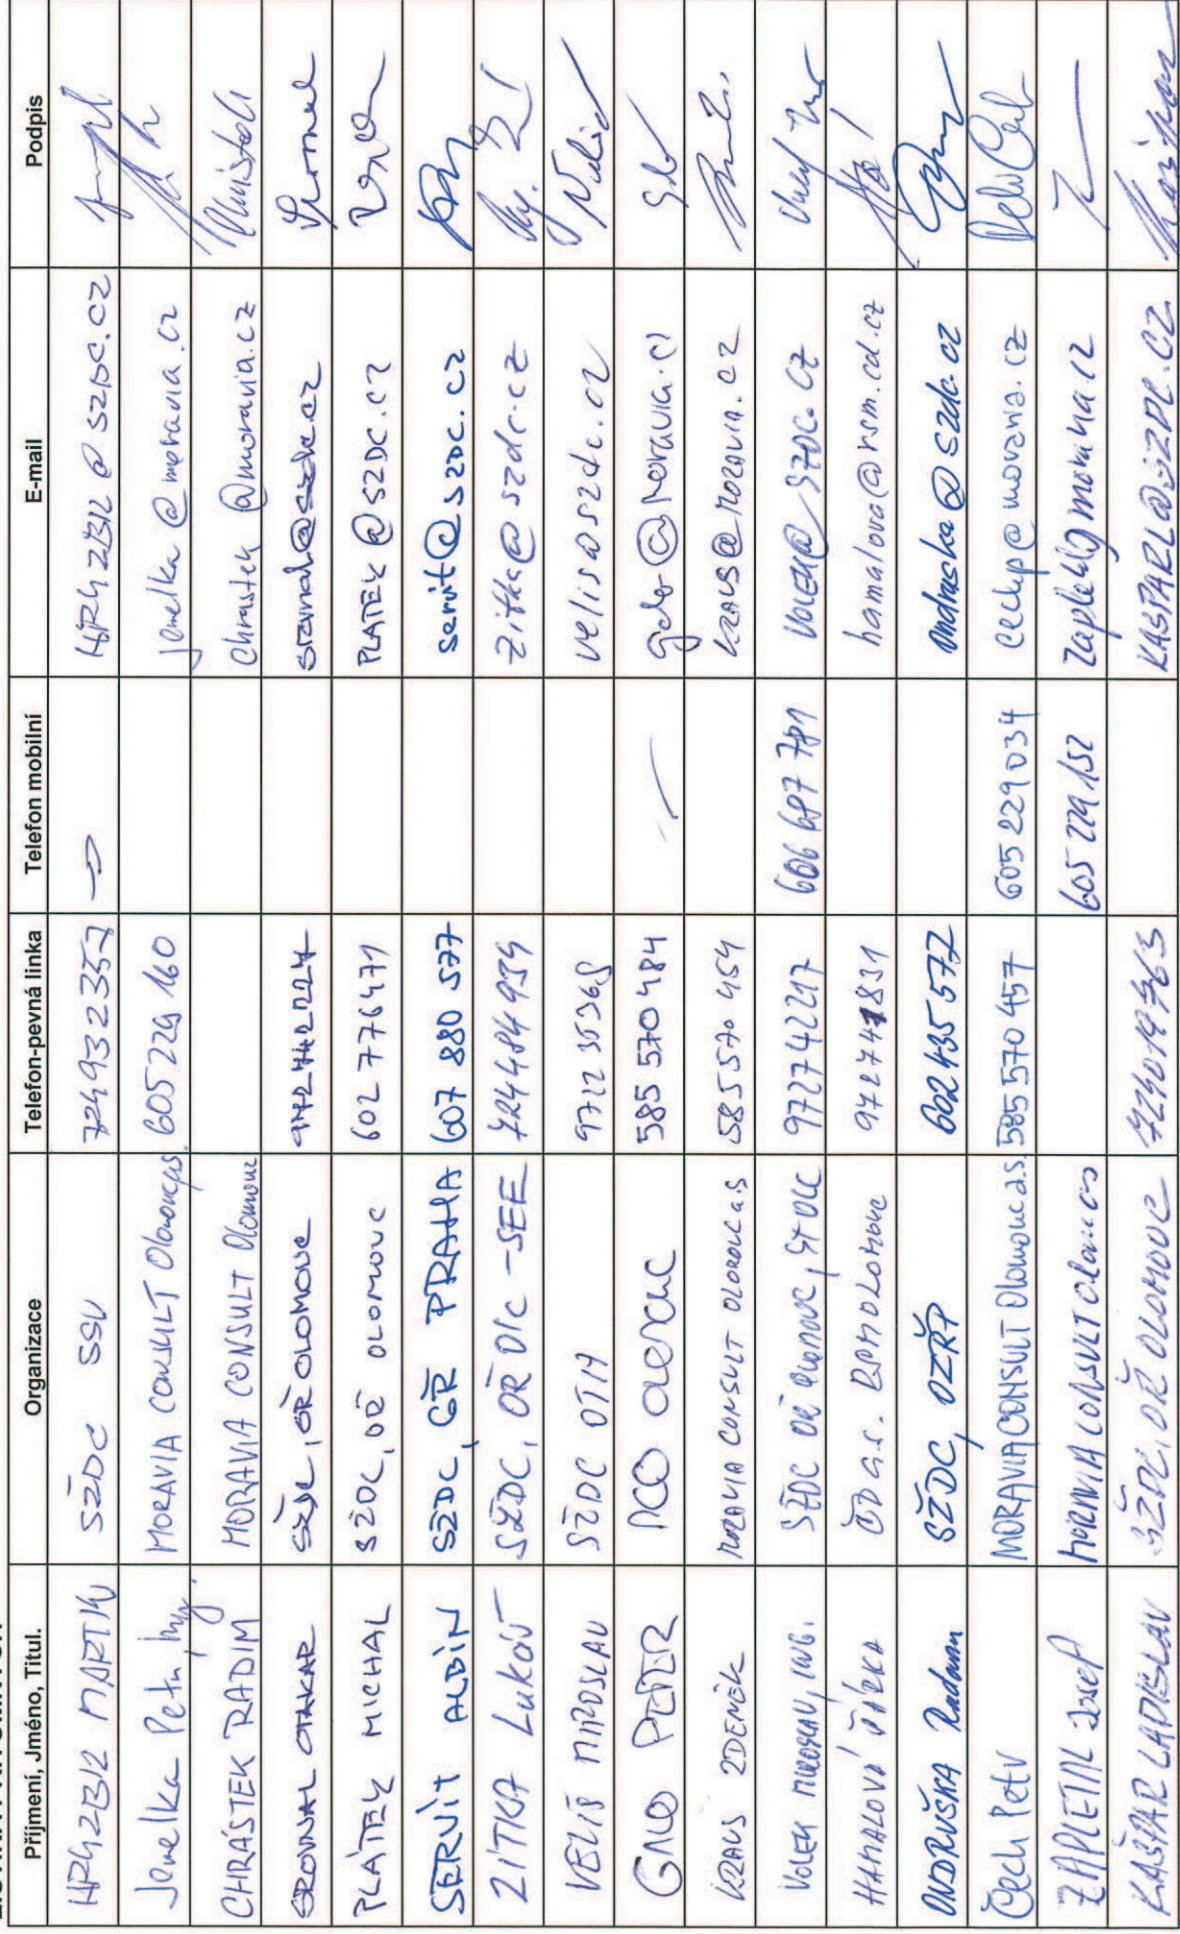 Příjmení, Jméno, Titul. Organizace Telefon-pevná linka Telefon mobilní E-mail Podpis
MARTIN SŽDC SSV 724932357
Jemelka Petr, Ing. MORAVIA CONSULT Olomouc 605229160 jemelka@moravia.cz
CHRÁSTEK RADIM MORAVIA CONSULT Olomouc chrastek@moravia.cz
SROVNAL OTAKAR SŽDC, OŘ OLOMOUC 972742224
PLÁTEK MICHAL SŽDC, OŘ OLOMOUC 602776471 PLATEK@SZDC.CZ
SERVÍT ALBÍN SŽDC, GŘ PRAHA 607 880 577 servit@szdc.cz
ZITKA Lukáš SŽDC, OŘ Olc - SEE 724484934 zitka@szdc.cz
VELIŠ MIROSLAV SŽDC velis@szdc.cz
PETER 585 570 484
KRAUS ZDENĚK MORAVIA CONSULT OLOMOUC a.s 585570454 KRAUS@MORAVIA.CZ
VOLEK MIROSLAV, ING. SŽDC OŘ OLOMOUC, 972742217 606 687 781 VOLEK@SZDC.CZ
HAMALOVÁ ŠÁRKA ČD a.s. RSM OLOMOUC 972741831 hamalova@rsm.cd.cz
ONDRUŠKA Radovan SŽDC, OZŘP 602435577 ondruska@szdc.cz
Čech Petr MORAVIA CONSULT Olomouc a.s. 585 570 457 605 229 034 cechp@moravia.cz
ZAPLETAL Josef MORAVIA CONSULT Olomouc 605 229 152
KAŠPAR LADISLAV SŽDC, OŘ OLOMOUC 724019763 KASPARL@SZDC.CZ